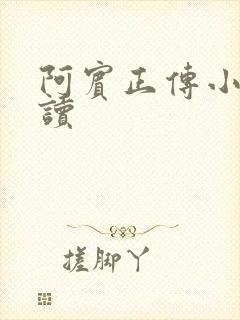 阿賓正傳小
讀
搓脚丫